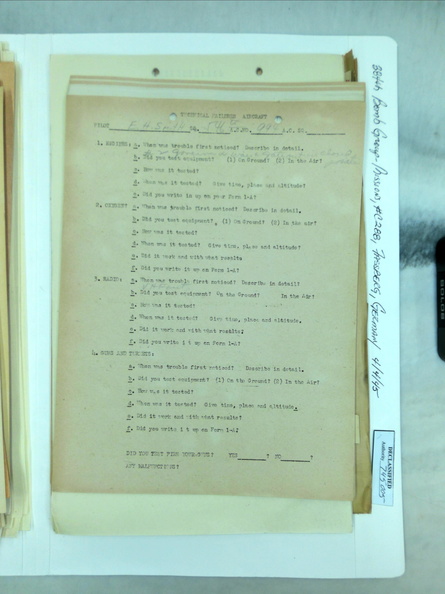 TECHNICAL FAILURES AIRCRAFT
PILOT F. H. Smith NO. A.C. NO.
1. ENGINES: a. When was trouble first noticed? Describe in detail.
b. Did you test equipment? (1) On Ground? (2) In the Air?
c. How was it tested?
d. When was it tested? Give time, place and altitude?
e. Did you write it up on your Form 1-A?
2. OXYGEN: a. When was trouble first noticed? Describe in detail.
b. Did you test equipment? (1) On Ground? (2) In the air?
c. How was it tested?
d. When was it tested? Give time, place and altitude?
e. Did it work and with what results
f. Did you write it up on Form 1-A?
3. RADIO: a. When was trouble first noticed? Describe in detail?
b. Did you test equipment? On the Ground? In the Air?
c. How was it tested?
d. When was it tested? Give time, place and altitude.
e. Did it work and with what results?
f. Did you write it up on Form 1-A?
4. GUNS AND TURRETS:
a. When was trouble first noticed? Describe in detail.
b. Did you test equipment? (1) On the Ground? (2) In the Air?
c. How was it tested?
d. When was it tested? Give time, place and altitude.
e. Did it work and with what results?
f. Did you write it up on Form 1-A?
DID YOU TEST FIRE YOUR GUNS? YES ? NO ?
ANY MALFUNCTIONS?
384th Bomb Group - Mission #288, Germany 4/4/45
DECLASSIFIED
Authority 745005